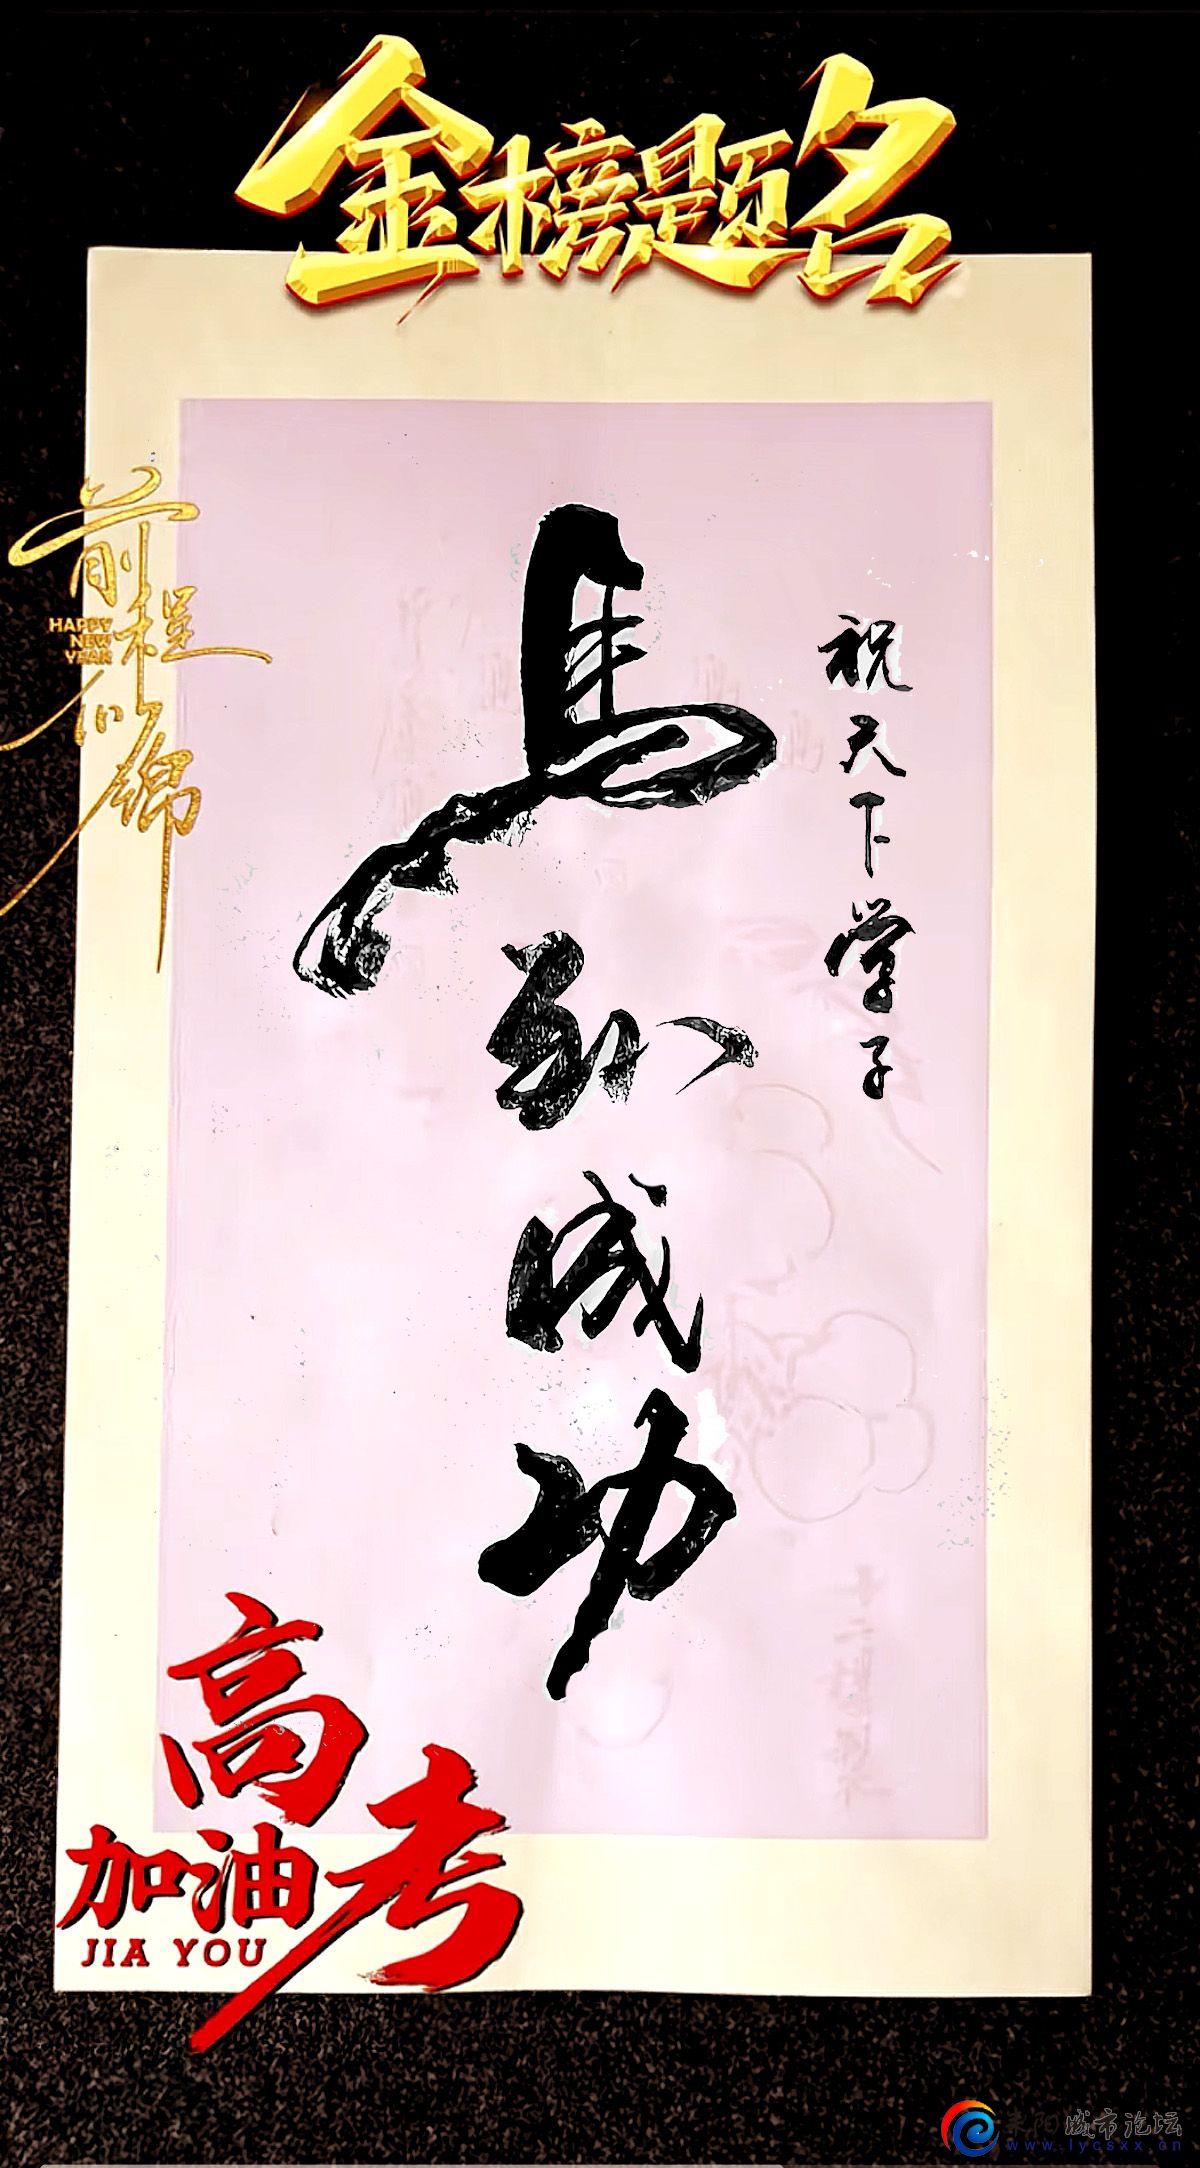 金榜题名
祝天下学子
马到成功
前程似锦
HAPPY
NEW
YEAR
高考
加油
JIA YOU
耒阳城市论坛
www.lycsxx.cn